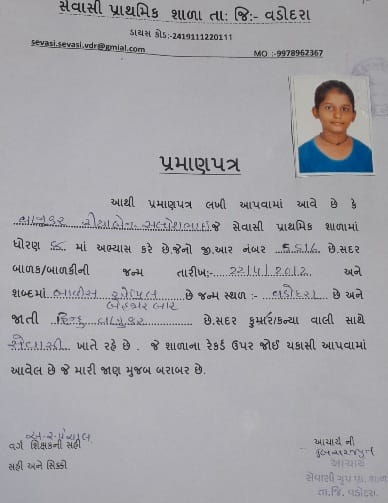 સેવાસી પ્રાથમિક શાળા તા: જિ:- વડોદરા
ડાયસ કોડ:-2419111220111
sevasi.sevasi.vdr@gmial.com MO :-9978962367
પ્રમાણપત્ર
આથી પ્રમાણપત્ર લખી આપવામાં આવે છે કે
જે સેવાસી પ્રાથમિક શાળામાં
ધોરણ માં અભ્યાસ કરે છે.જેનો જી.આર નંબર છે.સદર
બાળક/બાળકીની જન્મ તારીખ:- 22/4/2012 અને
શબ્દમાં બાવીસ એપ્રિલ છે જન્મ સ્થળ :- વડોદરા છે અને
બેહજાર બાર
જાતી હિન્દુ છે.સદર કુમાર/કન્યા વાલી સાથે
સેવાસી ખાતે રહે છે . જે શાળાના રેકર્ડ ઉપર જોઈ ચકાસી આપવામાં
આવેલ છે જે મારી જાણ મુજબ બરાબર છે.
વર્ગ શિક્ષકની સહી
સહી અને સિક્કો
આચાર્ય ની
આચાર્ય
સેવાસી ગ્રુપ પ્રા. શાળા
તા.જિ. વડોદરા.